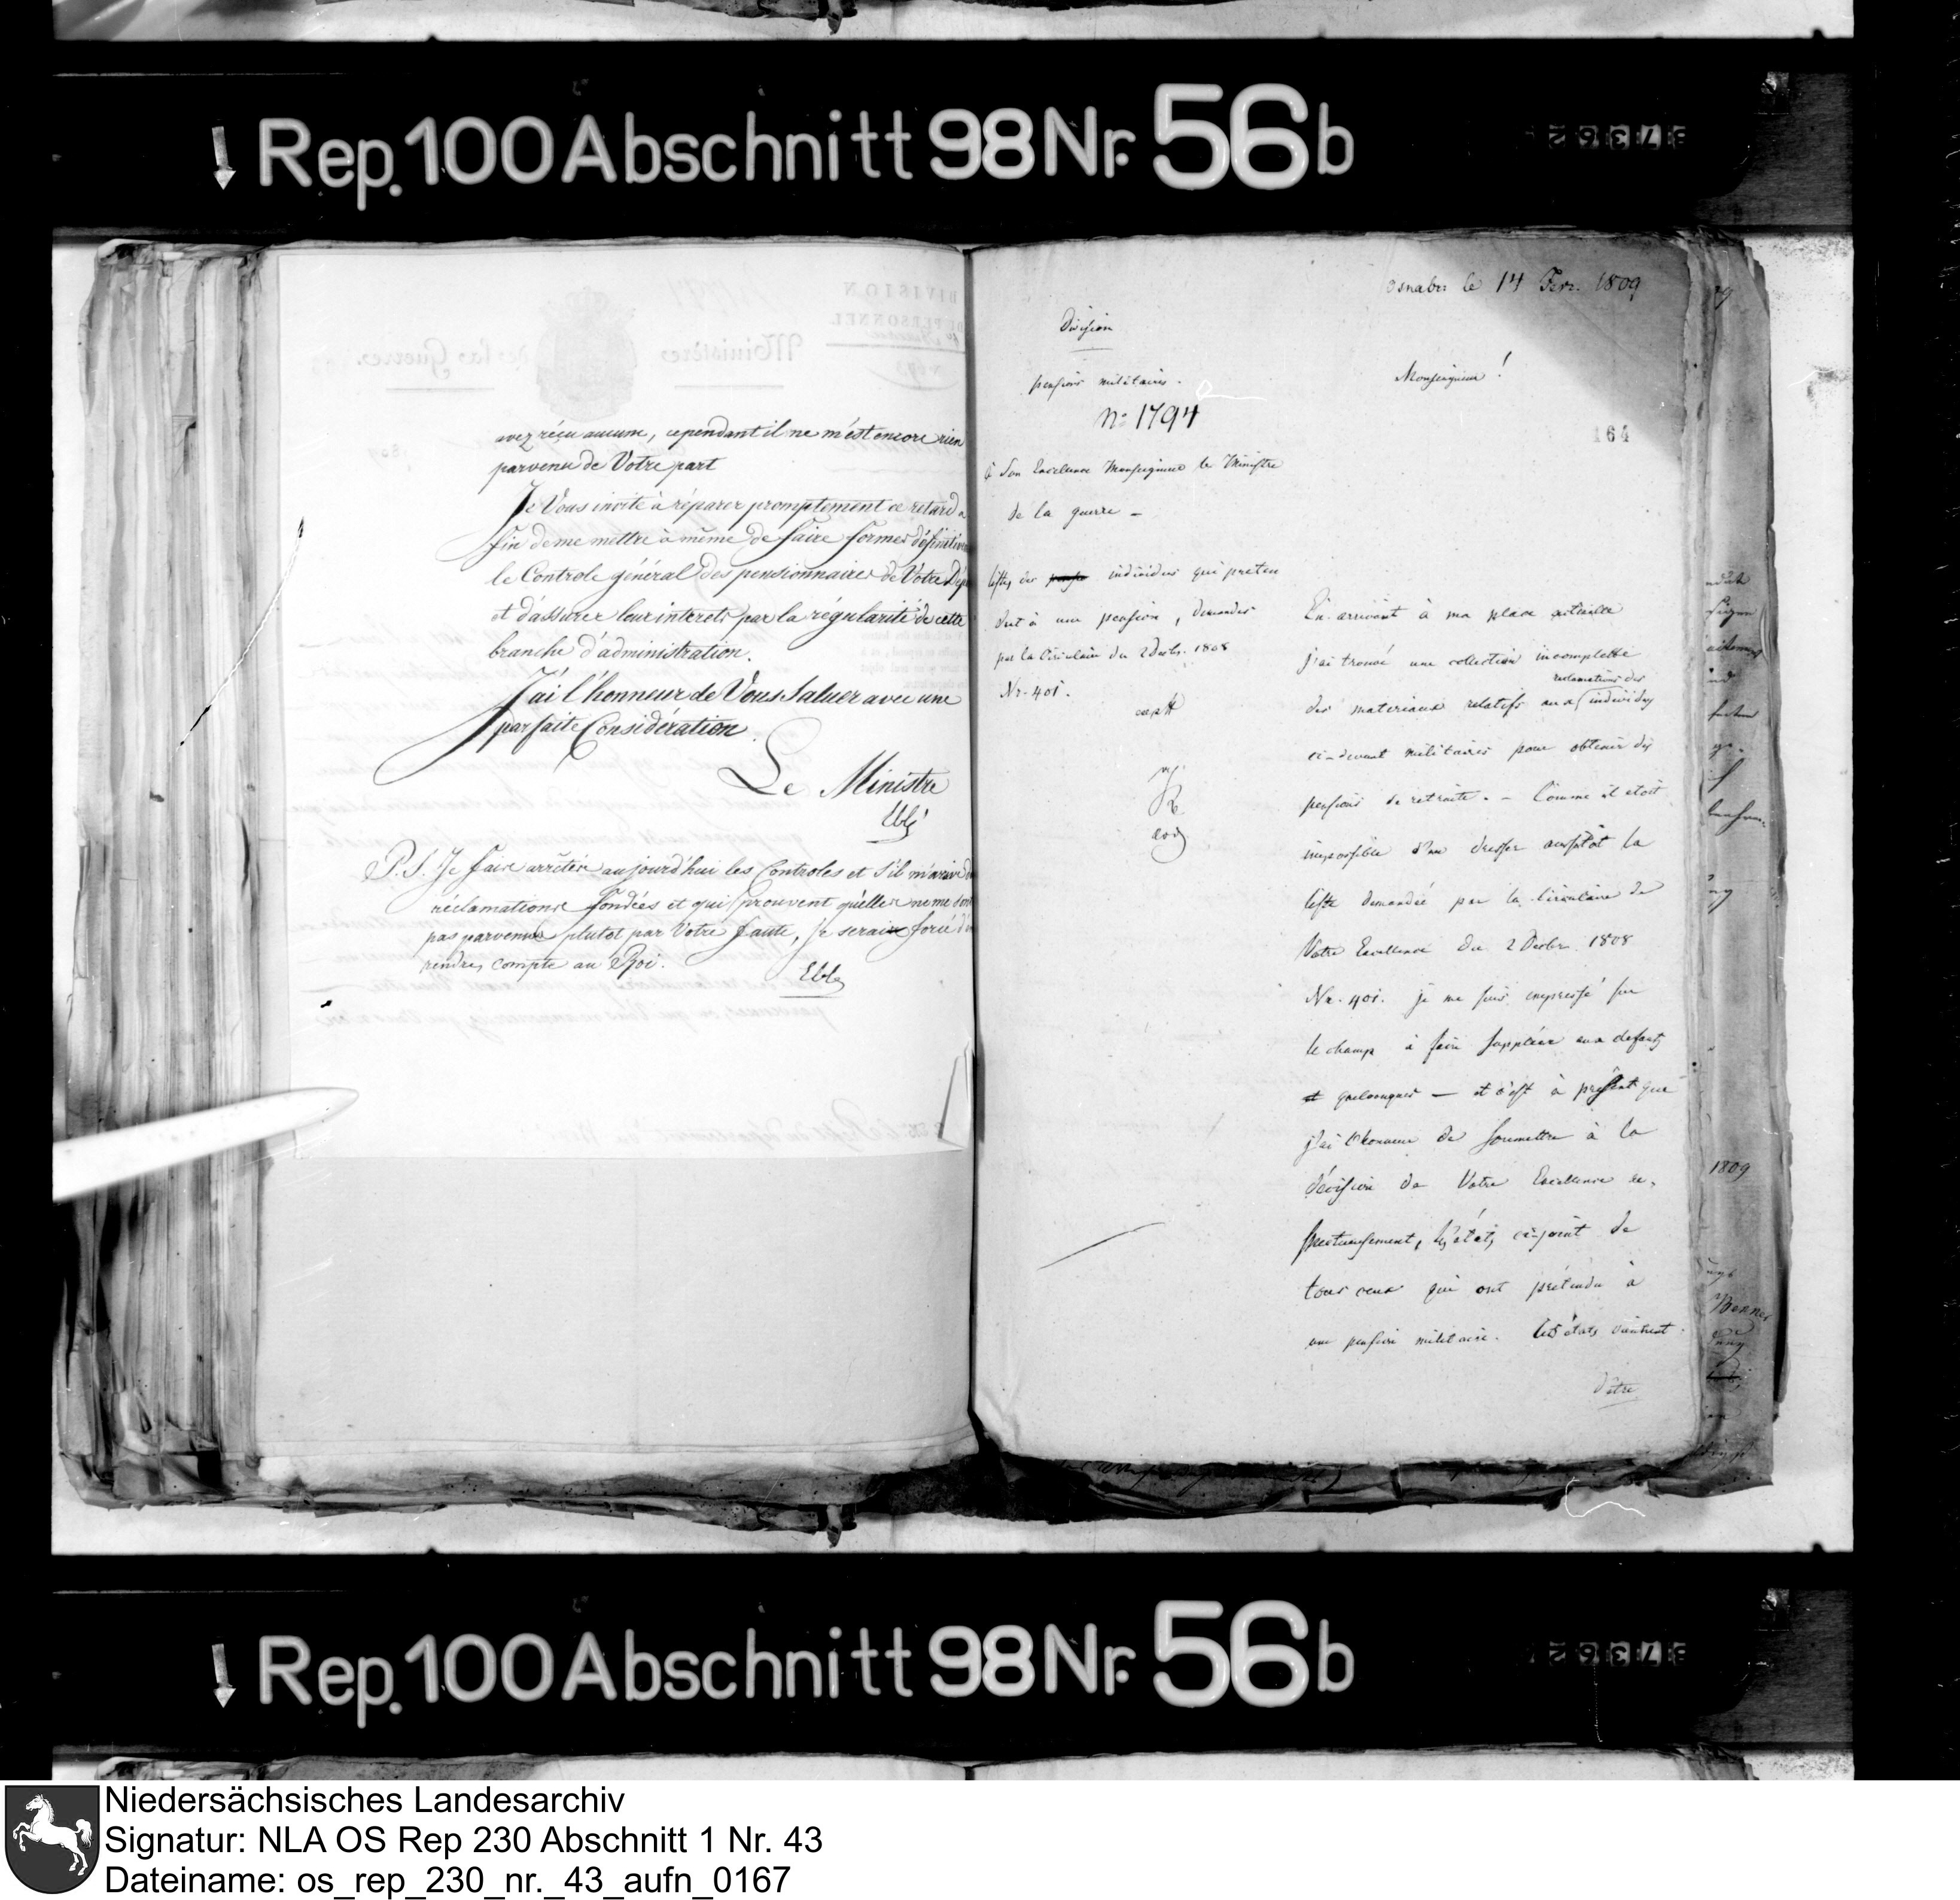 Rep. 100 Abschnitt 98 Nr. 56b
avez réçu aucune, cependant il ne m'est encore rien
parvenu de Votre part
Je Vous invite à réparer promptement ce retard a
fin de me mettre à même de faire former définitive
le Controle général des pensionnaires de Votre Dép
et d'assurer leur interets par la régularité de cette
branche d'administration.
J'ai l'honneur de Vous Saluer avec une
parfaite Considération.
Le Ministre
Eblé
P.S. Je faire arrêter aujourd'hui les Controles et s'il m'arrive de
réclamations fondées et qui prouvent qu'elles ne me sont
pas parvenues plutot par Votre faute, je serais forcé d'en
rendre compte au Roi.
Eblé
Osnabr. le 14 Fevr. 1809
Division
pensions militaires.
No 1794
à Son Excellence Monseigneur le Ministre
de la guerre -
listes des individus qui preten
dent à une pension, demandés
par la Circulaire du 2 Decbr. 1808
Nr. 401.
Monseigneur!
164
En arrivant à ma place actuelle
j'ai trouvé une collection incomplette
des materiaux relatifs aux reclamations des individus
ci-devant militaires pour obtenir des
pensions de retraite. - Comme il etoit
impossible d'en dresser aussitôt la
liste demandée par la Circulaire de
Votre Excellence du 2 Decbr. 1808
Nr. 401. je me suis empressé sur
le champ à faire suppléer aux defauts
quelconques - et c'est à présent que
j'ai l'honneur de soumettre à la
décision de Votre Excellence re-
spectueusement, les états ci-joint de
tous ceux qui ont prétendu à
une pension militaire. Les états viennent
d'être
1809
Rep. 100 Abschnitt 98 Nr. 56b
Niedersächsisches Landesarchiv
Signatur: NLA OS Rep 230 Abschnitt 1 Nr. 43
Dateiname: os_rep_230_nr._43_aufn_0167